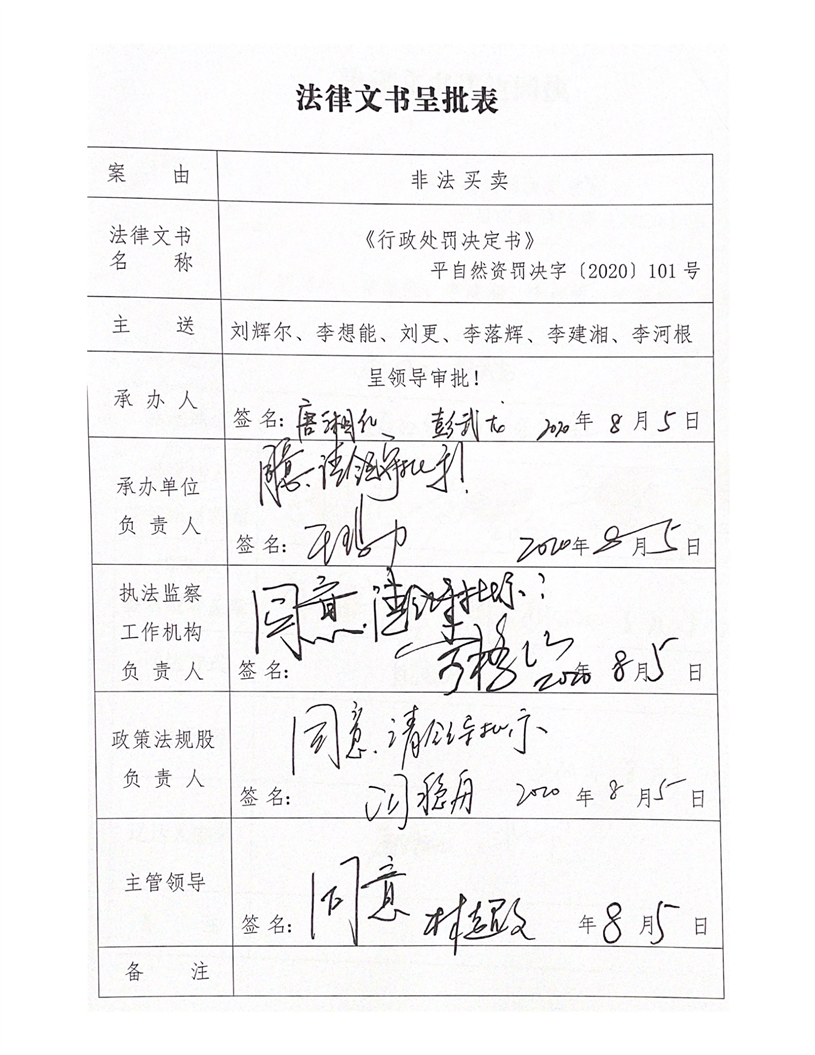 法律文书呈批表
案由 非法买卖
法律文书
名称
《行政处罚决定书》
平自然资罚决字〔2020〕101号
主送 刘辉尔、李想能、刘更、李落辉、李建湘、李河根
承办人
呈领导审批！
签名： 唐湘 彭武 2020年8月5日
承办单位
负责人
同意，请领导批示！
签名： 2020年8月5日
执法监察
工作机构
负责人
同意，请领导批示。
签名： 2020年8月5日
政策法规股
负责人
同意，请领导批示
签名： 2020年8月5日
主管领导
同意
签名： 林 年8月5日
备注